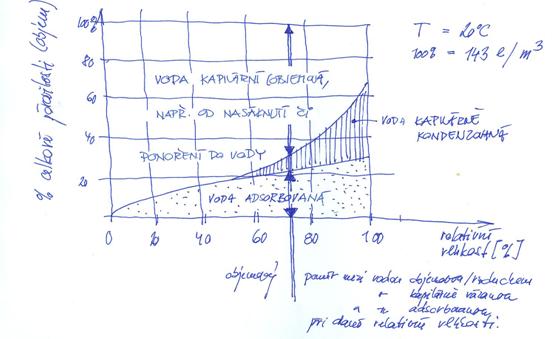 % celkové pórovitosti (objem)
100%
80
60
40
20
0
20
40
60
80
100
T = 20°C
100% = 143 l/m³
VODA KAPILÁRNÍ (OBJEMOVÁ,
NAPŘ. OD NASÁKNUTÍ ČI
PONOŘENÍ DO VODY
VODA KAPILÁRNĚ
KONDENZOVANÁ
VODA ADSORBOVANÁ
relativní
vlhkost [%]
objemový poměr mezi vodou objemovou/vzduchem
kapilárně vázanou
a adsorbovanou
při dané relativní vlhkosti.